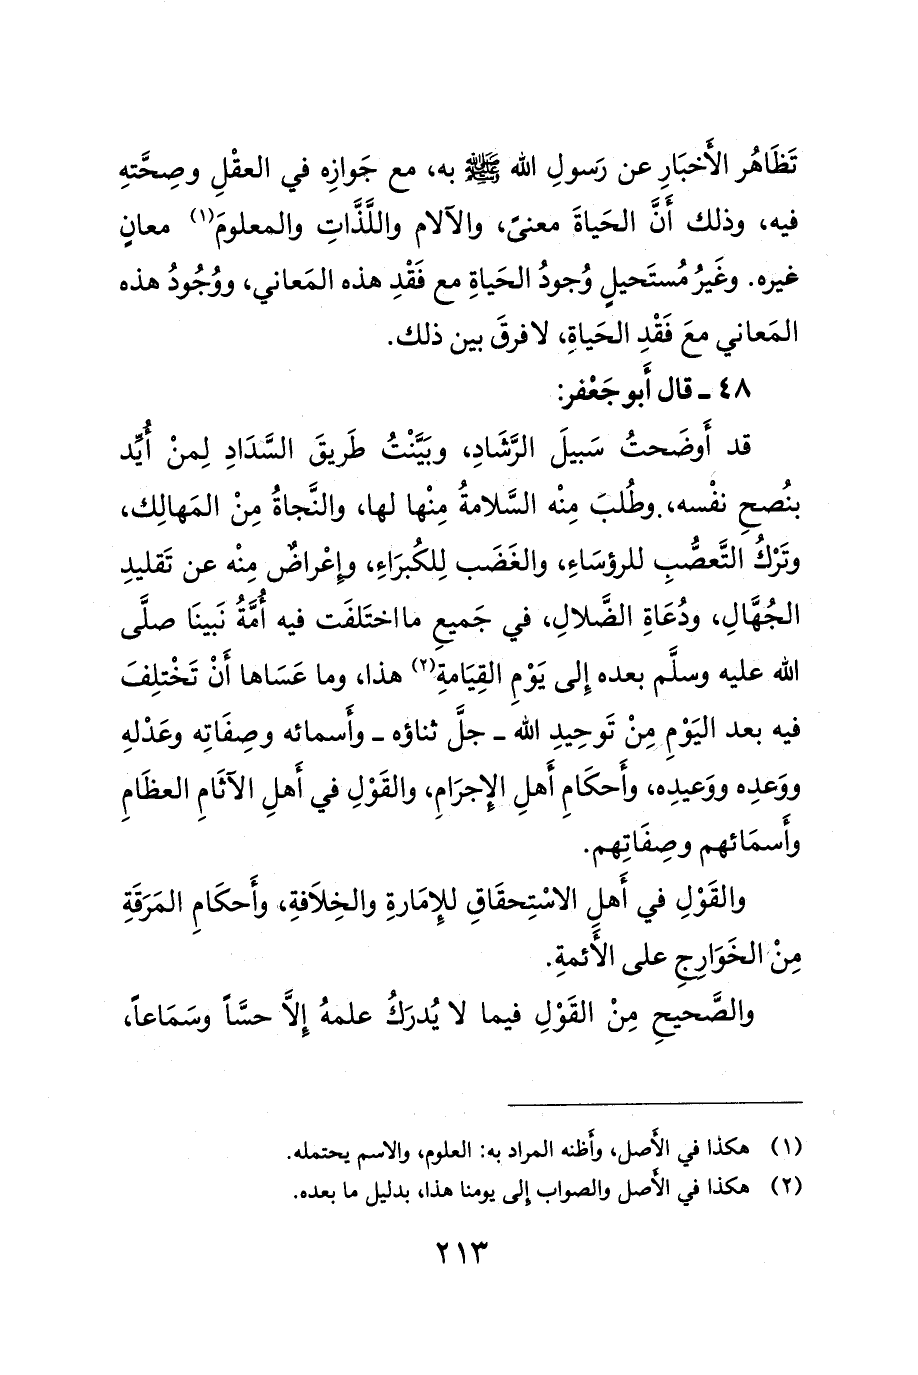 تَظَاهُر الأَخبَارِ عن رَسولِ الله ﷺ به، مع جَوازِه في العقْلِ وصِحَّتهِ
فيه، وذلك أَنَّ الحَياةَ معنىً، والآلام واللَّذَّاتِ والمعلومَ(١) معانٍ
غيره. وغَيرُ مُستَحيلٍ وُجودُ الحَياةِ مع فَقْدِ هذه المَعاني، ووُجُودُ هذه
المَعاني معَ فَقْدِ الحَياةِ، لا فرقَ بين ذلك.
٤٨ ـ قال أَبو جَعْفر:
قد أَوضَحتُ سَبيلَ الرَّشَادِ، وبَيَّنْتُ طَريقَ السَّدَادِ لِمنْ أُيِّد
بنُصحِ نفْسه، وطُلبَ مِنْه السَّلامةُ مِنْها لها، والنَّجاةُ مِنْ المَهالِك،
وتَرْكُ التَّعصُّبِ للرؤسَاءِ، والغَضَب لِلكُبرَاءِ، وإعْراضٌ مِنْه عن تَقليدِ
الجُهَّالِ، ودُعَاةِ الضَّلالِ، في جَميعِ ما اختَلفَت فيه أُمَّةُ نَبينَا صلَّى
الله عليه وسلَّم بعده إلى يَوْمِ القِيَامةِ(٢) هذا، وما عَسَاها أَنْ تَخْتلِفَ
فيه بعد اليَوْمِ مِنْ تَوحِيدِ الله ـ جلَّ ثناؤه ـ وأَسمائه وصِفَاتِه وعَدْلهِ
ووَعدِه ووَعيدِه، وأَحكَامِ أَهلِ الإجرَامِ، والقَوْلِ في أَهلِ الآثَامِ العظَامِ
وأَسمَائهم وصِفَاتِهم.
والقَوْلِ في أَهلِ الاسْتِحقَاقِ للإمَارةِ والخِلَافةِ، وأَحكَامِ المَرَقَةِ
مِنْ الخَوَارِجِ على الأَئمةِ.
والصَّحيحِ مِنْ القَوْلِ فيما لا يُدرَكُ علمهُ إلاَّ حسَّاً وسَمَاعاً،
(١) هكذا في الأَصل، وأَظنه المراد به: العلوم، والاسم يحتمله.
(٢) هكذا في الأَصل والصواب إلى يومنا هذا، بدليل ما بعده.
٢١٣